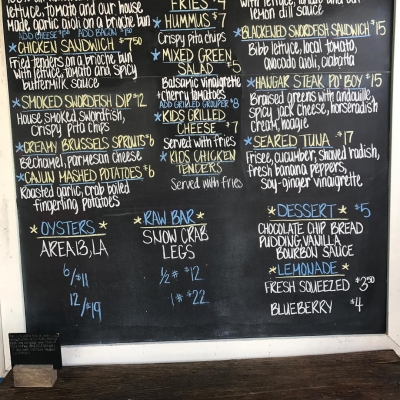 lettuce, tomato and our house
Made garlic aioli on a brioche bun
ADD CHEESE $1.50 ADD BACON $1.50
*CHICKEN SANDWICH * $7.50
Fried tenders on a brioche bun
with lettuce, tomato and spicy
buttermilk sauce
*SMOKED SWORDFISH DIP *12
House smoked swordfish,
Crispy pita chips
*CREAMY BRUSSELS SPROUTS *6
Béchamel, parmesan cheese
*CAJUN MASHED POTATOES *6
Roasted garlic, crab boiled
fingerling potatoes
FRIES * 4
* HUMMUS * $7
Crispy pita chips
* MIXED GREEN
SALAD * 5
Balsamic vinaigrette
cherry tomatoes
ADD GRILLED GROUPER $8
* KIDS GRILLED
CHEESE * $7
Served with fries
* KIDS CHICKEN
TENDERS
Served with fries
lettuce, tomato and
lemon dill sauce
*BLACKENED SWORDFISH SANDWICH * $15
Bibb lettuce, local tomato,
avocado aioli, ciabatta
*HANGAR STEAK PO' BOY * $15
Braised greens with andouille,
spicy jack cheese, horseradish
cream, hoagie
* SEARED TUNA *17
Frisee, cucumber, shaved radish,
fresh banana peppers,
soy-ginger vinaigrette
* OYSTERS *
AREA 13, LA
6/$11
12/$19
* RAW BAR *
SNOW CRAB
LEGS
1/2 # $12
1 # $22
* DESSERT * $5
CHOCOLATE CHIP BREAD
PUDDING, VANILLA
BOURBON SAUCE
* LEMONADE *
FRESH SQUEEZED $3.50
BLUEBERRY $4